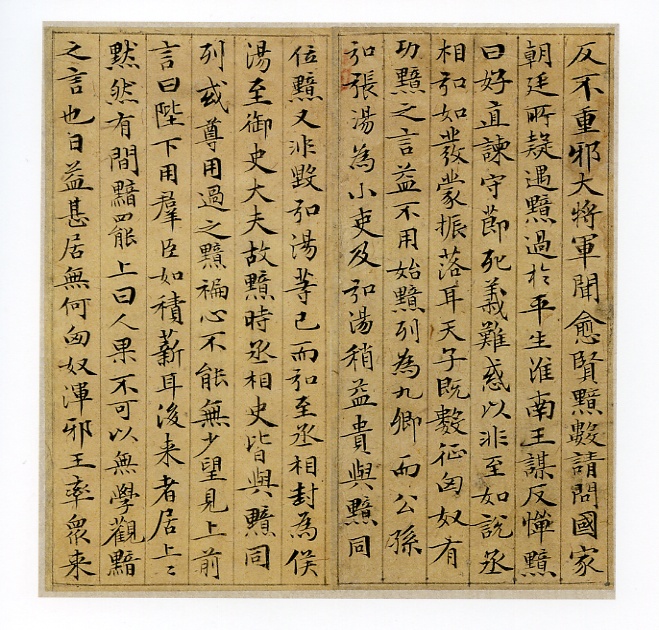 反不重邪大將軍聞愈賢黯數請問國家
朝廷所疑遇黯過扵平生淮南王謀反憚黯
曰好直諫守節死義難惑以非至如說丞
相弘如發蒙振落耳天子既數征匈奴有
功黯之言益不用始黯列為九卿而公孫
弘張湯為小吏及弘湯稍益貴與黯同
位黯又非毀弘湯等已而弘至丞相封為侯
湯至御史大夫故黯時丞相史皆與黯同
列或尊用過之黯褊心不能無少望見上前
言曰陛下用羣臣如積薪耳後来者居上〻
黙然有間黯罷上曰人果不可以無學觀黯
之言也日益甚居無何匈奴渾邪王率衆来